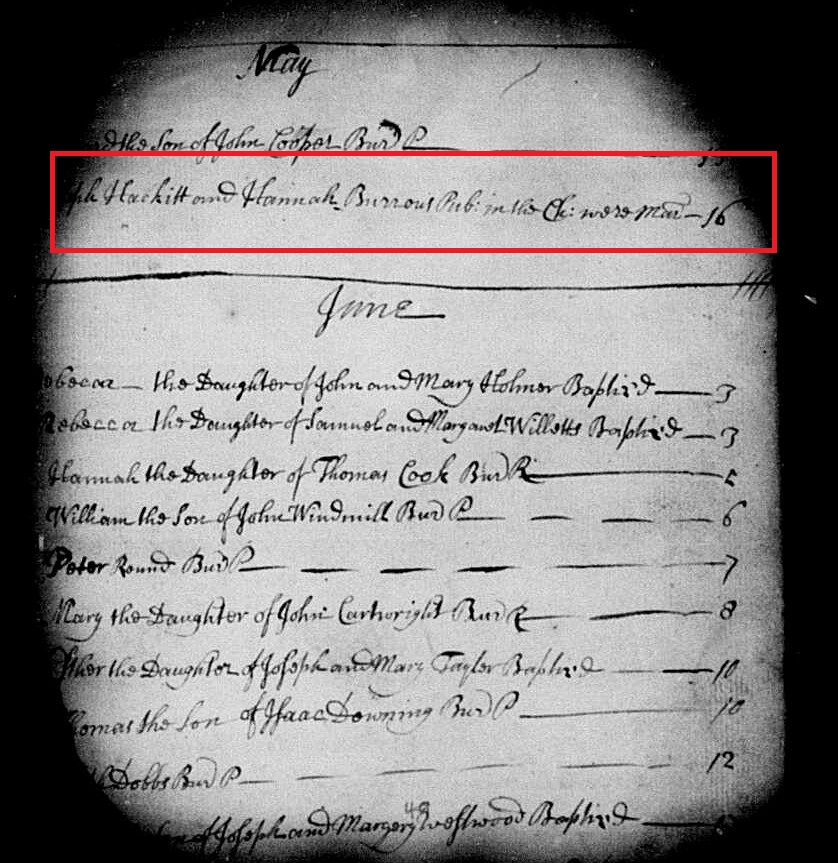 May
the Son of John Cooper Bur'd P
Hackitt and Hannah Burrous Pub: in the Ch: were Mar 16
June
the Daughter of John and Mary Holmer Baptiz'd 3
Rebecca the Daughter of Samuel and Margaret Willetts Baptiz'd 3
Hannah the Daughter of Thomas Cook Bur'd 5
William the Son of John Windmill Bur'd P 6
Peter Round Bur'd P 7
Mary the Daughter of John Cartwright Bur'd 8
the Daughter of Joseph and Mary Tayler Baptiz'd 10
the Son of Isaac Downing Bur'd P 10
Dobbs Bur'd P 12
of Joseph and Margery Westwood Baptiz'd